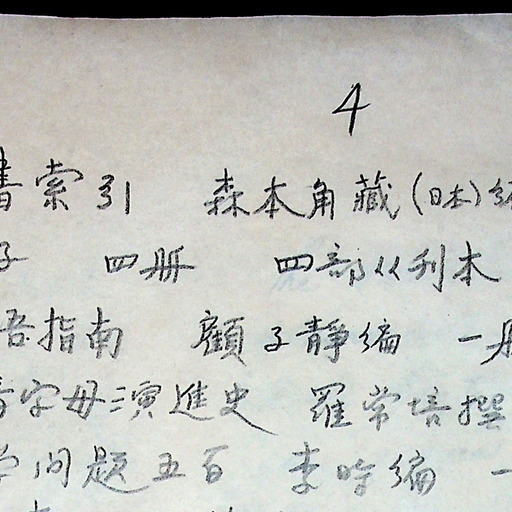 4
書索引 森本角藏(日本)編
子 四册 四部丛刊本
指南 顧子靜編 一册
音字母演進史 羅常培撰
学问题五百 李时编 一